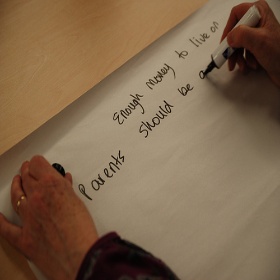 Enough money to live on
Parents should be a